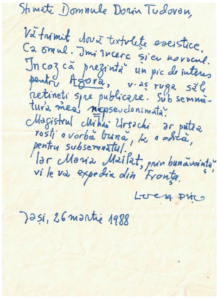 Stimate Domnule Dorin Tudoran,
Vă trimit două textulețe eseistice.
Ca omul. Îmi încerc și eu norocul.
În caz că prezintă un pic de interes
pentru Agora, v-aș ruga să le
rețineți spre publicare. Sub semnă-
tura mea, nepseudonimă.
Magistrul Mihai Ursachi ar putea
rosti o vorbă bună, la o adică,
pentru subsemnatul.
Iar Maria Mailat, prin bunăvoință,
vi le va expedia din Franța.
Luca Pițu
Iași, 26 martie 1988